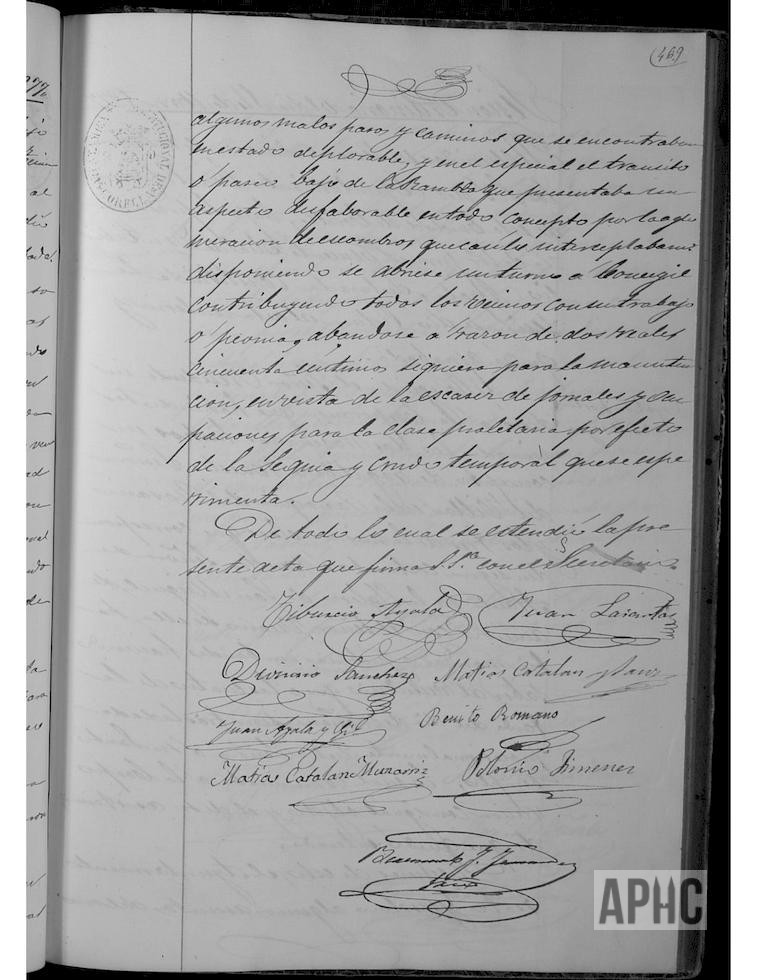 (469
algunos malos pasos y caminos que se encontraban
en estado deplorable, y en el especial el transito
ó paseo bajo de la Rambla que presentaba un
aspecto desfaborable en todo concepto por la aglo
meracion de escombros que casi les interceptaban
disponiendo se abriese un turno a Concegil
contribuyendo todos los vecinos con su trabajo
ó peonia, abandose a razon de dos reales
cincuenta centimos siquiera para la manuten
cion, en vista de la escasez de jornales y ocu
paciones para la clase proletaria por efecto
de la sequia y crudo temporal que se espe
rimenta.
De todo lo cual se estendió la pre
sente acta que firma S.S. con el Secretario.
Tiburcio Ayala Juan
Dionisio Sanchez Matias Catalan Sanz
Juan Ayala y Gil Benito Romano
Matias Catalan Munarriz Polonio Jimenez
APHC